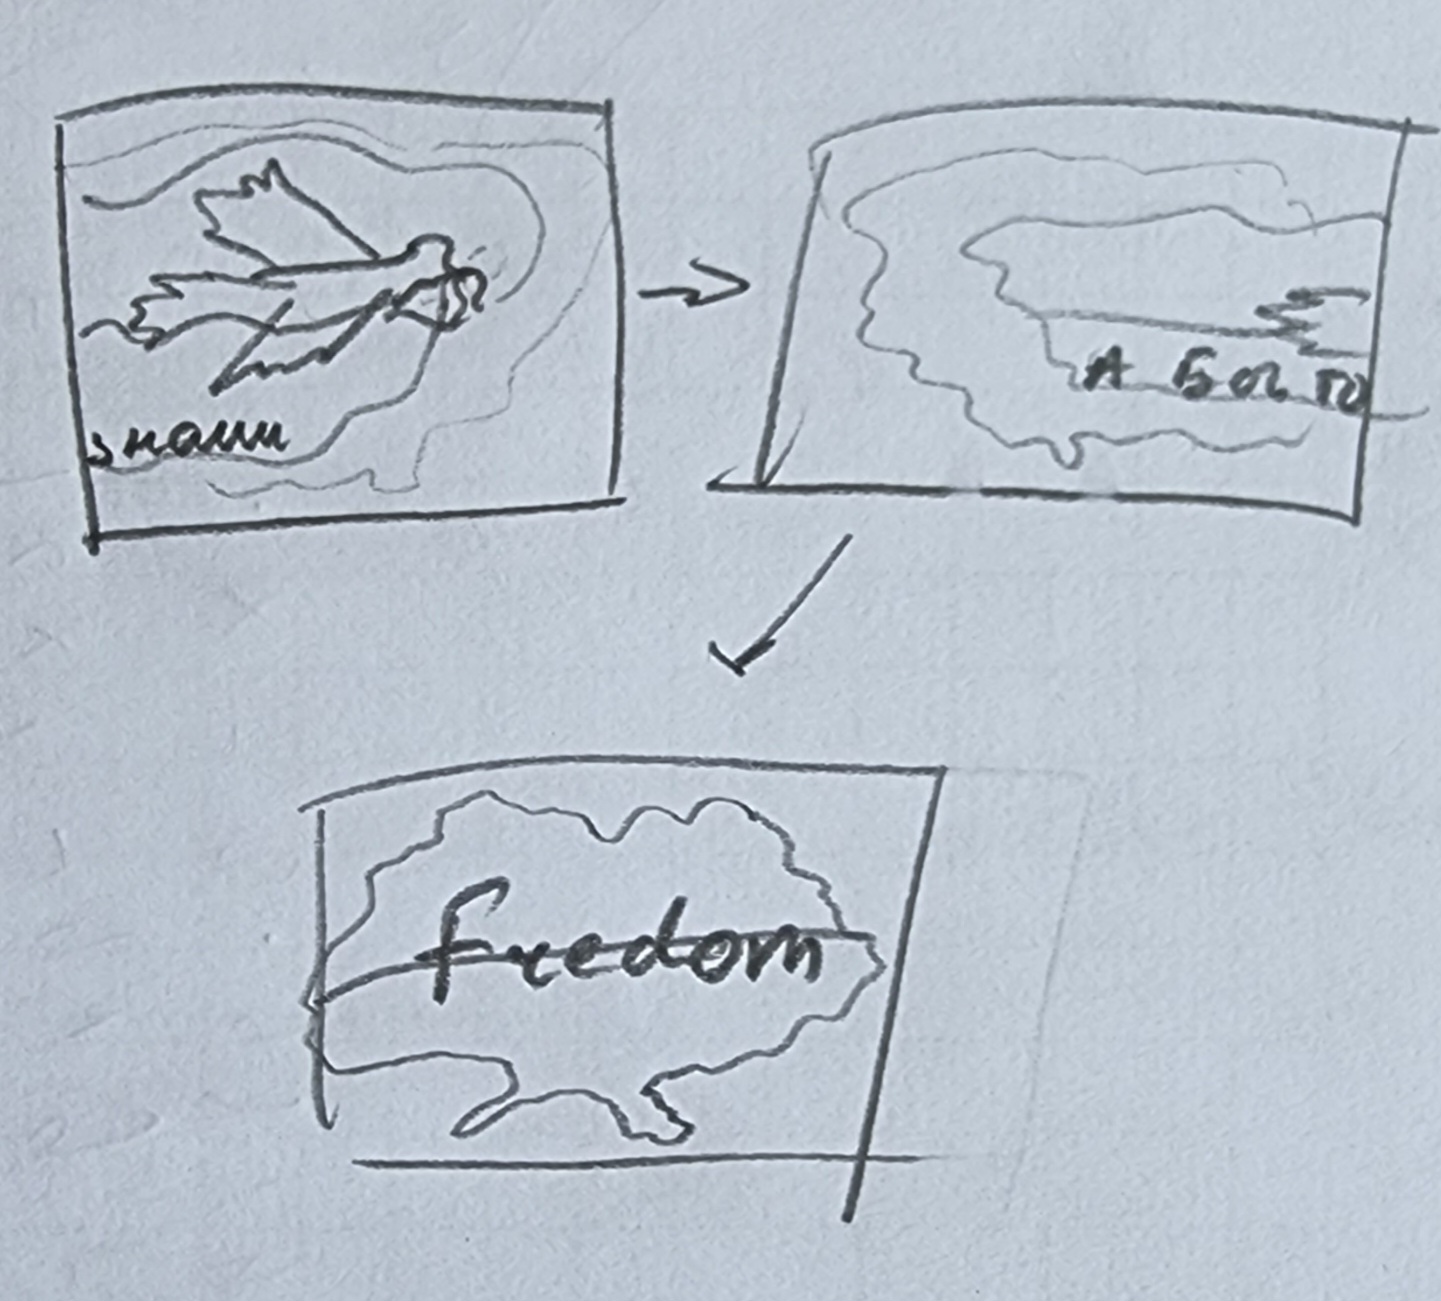 з нами
А Бог то
freedom